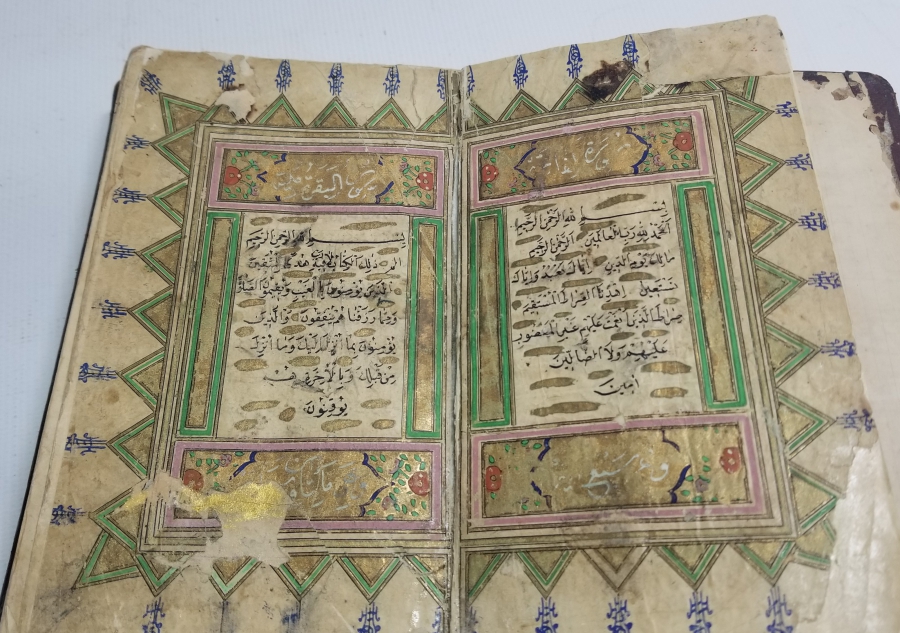 سورة
بسم لله الرحمن الرحيم
الحمد لله رب العالمين الرحمن الرحيم
مالك يوم الدين اياك نعبد واياك
نستعين اهدنا الصراط المستقيم
صراط الذين انعمت عليهم غير المغضوب
عليهم ولا الضالين
امين
سورة البقرة
بسم لله الرحمن الرحيم
الم ذلك الكتاب لا ريب فيه هدى للمتقين
الذين يؤمنون بالغيب ويقيمون الصلوة
ومما رزقناهم ينفقون والذين
يؤمنون بما انزل اليك وما انزل
من قبلك وبالاخرة هم
يوقنون